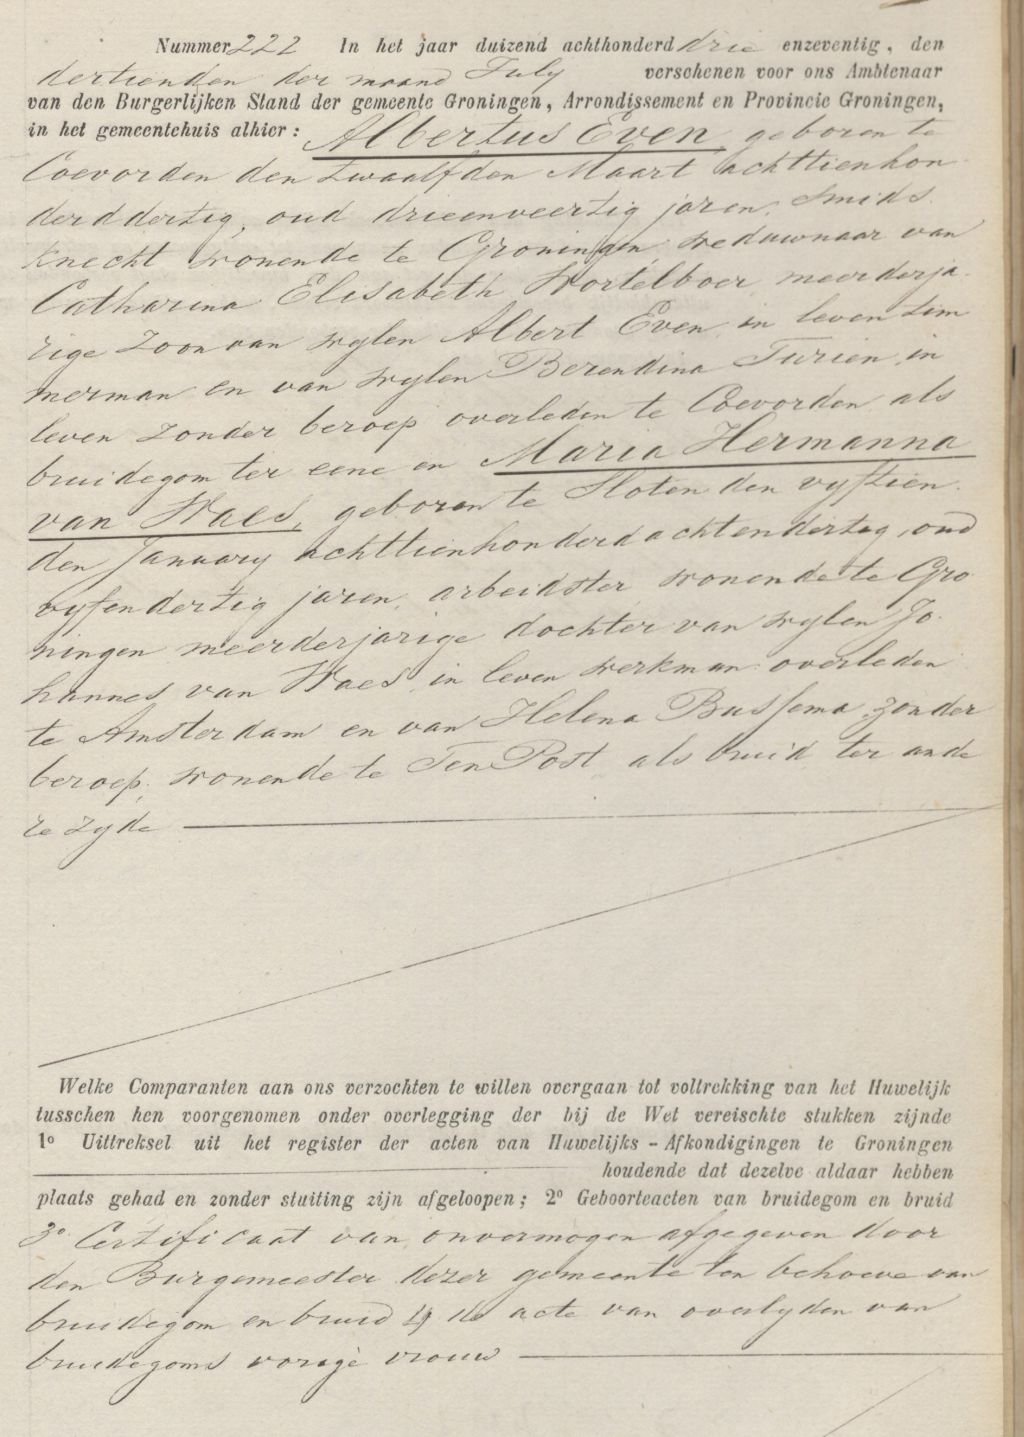 Nummer 222 In het jaar duizend achthonderd drie enzeventig, den
dertienden der maand July verschenen voor ons Ambtenaar
van den Burgerlijken Stand der gemeente Groningen, Arrondissement en Provincie Groningen,
in het gemeentehuis alhier: Albertus Even geboren te
Coevorden den twaalfden Maart achttienhon
derddertig, oud drieenveertig jaren, smids
knecht wonende te Groningen, weduwnaar van
Catharina Elisabeth Wortelboer meerderja
rige zoon van wylen Albert Even, in leven tim
merman en van wylen Berendina Turien, in
leven zonder beroep overleden te Coevorden als
bruidegom ter eene en Maria Hermanna
van Waes, geboren te Sloten den vyftien
den January achttienhonderdachtendertig, oud
vyfendertig jaren, arbeidster, wonende te Gro
ningen meerderjarige dochter van wylen Jo
hannes van Waes, in leven werkman overleden
te Amsterdam en van Helena Bussema, zonder
beroep, wonende te Ten Post als bruid ter ande
re zyde
Welke Comparanten aan ons verzochten te willen overgaan tot voltrekking van het Huwelijk
tusschen hen voorgenomen onder overlegging der bij de Wet vereischte stukken zijnde
1º Uittreksel uit het register der acten van Huwelijks-Afkondigingen te Groningen
houdende dat dezelve aldaar hebben
plaats gehad en zonder stuiting zijn afgeloopen; 2º Geboorteacten van bruidegom en bruid
3º Certificaat van onvermogen afgegeven door
den Burgemeester dezer gemeente ten behoeve van
bruidegom en bruid 4º de acte van overlyden van
bruidegoms vorige vrouw